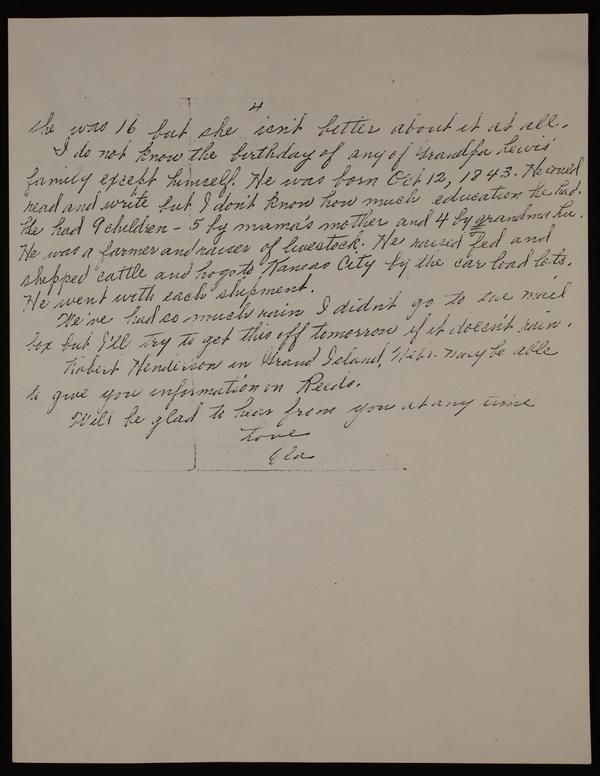 4
she was 16 but she isn't better about it at all.
I do not know the birthday of any of Grandpa Lewis'
family except himself. He was born Oct 12, 1843. He could
read and write but I don't know how much education he had.
He had 9 children - 5 by mama's mother and 4 by grandma
He was a farmer and raiser of livestock. He raised, fed and
shipped cattle and hogs to Kansas City by the car load lots.
He went with each shipment.
We've had so much rain I didn't go to the mail
box but I'll try to get this off tomorrow if it doesn't rain.
Robert Henderson in Grand Island, Nebr. may be able
to give you information on Reeds.
Will be glad to hear from you at any time
Love